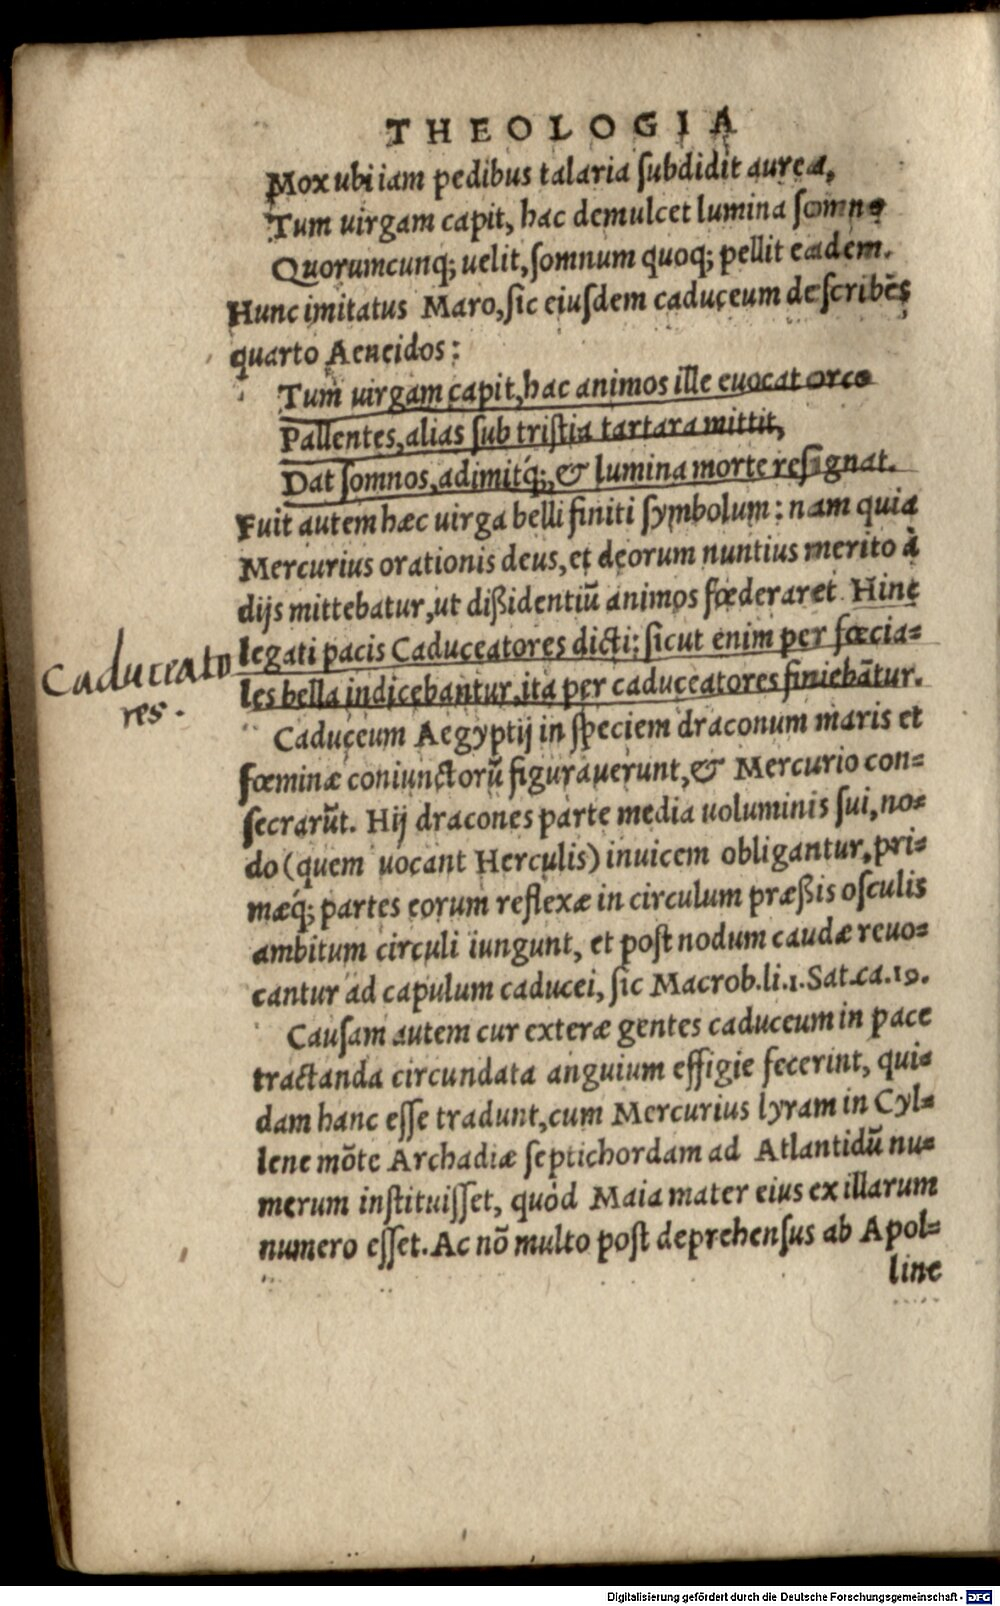 THEOLOGIA
Mox ubi iam pedibus talaria ſubdidit aurea,
Tum uirgam capit, hac demulcet lumina ſomno
Quorumcunq; uelit, ſomnum quoq; pellit eadem.
Hunc imitatus Maro, ſic eiuſdem caduceum deſcribẽs
quarto Aeneidos:
Tum uirgam capit, hac animos ille euocat orco
Pallentes, alias ſub triſtia tartara mittit,
Dat ſomnos, adimitq́;, & lumina morte reſignat.
Fuit autem hæc uirga belli finiti ſymbolum: nam quia
Mercurius orationis deus, et deorum nuntius merito à
dijs mittebatur, ut dißidentiũ animos fœderaret. Hinc
Caduceato
res.
legati pacis Caduceatores dicti: ſicut enim per fœcia=
les bella indicebantur, ita per caduceatores finiebãtur.
Caduceum Aegyptij in ſpeciem draconum maris et
fœminæ coniunctorũ figurauerunt, & Mercurio con=
ſecrarũt. Hij dracones parte media uoluminis ſui, no=
do (quem uocant Herculis) inuicem obligantur, pri=
mæq́; partes eorum reflexæ in circulum præßis oſculis
ambitum circuli iungunt, et poſt nodum caudæ reuo=
cantur ad capulum caducei, ſic Macrob. li. 1. Sat. ca. 19.
Cauſam autem cur exteræ gentes caduceum in pace
tractanda circundata anguium effigie fecerint, qui=
dam hanc eſſe tradunt, cum Mercurius lyram in Cyl=
lene mõte Archadiæ ſeptichordam ad Atlantidũ nu=
merum inſtituiſſet, quòd Maia mater eius ex illarum
numero eſſet. Ac nõ multo poſt deprehenſus ab Apol=
line
Digitalisierung gefördert durch die Deutsche Forschungsgemeinschaft - DFG